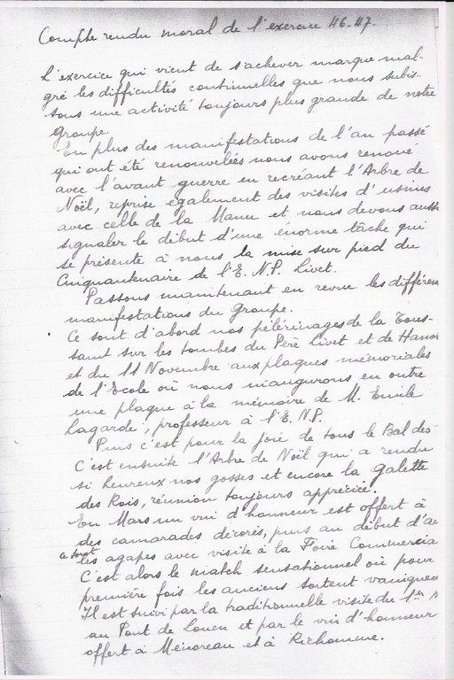 Compte rendu moral de l'exercice 46.47.
L'exercice qui vient de s'achever marque mal-
gré les difficultés continuelles que nous subis-
sons une activité toujours plus grande de notre
Groupe.
En plus des manifestations de l'an passé
qui ont été renouvelées nous avons renoué
avec l'avant guerre en recréant l'Arbre de
Noël, reprise également des visites d'usines
avec celle de la Manu et nous devons auss
signaler le début d'une enorme tâche qui
se présente à nous la mise sur pied du
Cinquantenaire de l'E.N.P. Livet.
Passons maintenant en revue les différen
manifestations du Groupe.
Ce sont d'abord nos pèlerinages de la Tous-
saint sur les tombes du Père Livet et de
et du 11 Novembre aux plaques mémoriales
de l'Ecole où nous inaugurons en outre
une plaque à la mémoire de M. Emile
Lagarde, professeur à l'E.N.P.
Puis c'est pour la joie de tous le Bal des
C'est ensuite l'Arbre de Noël qui a rendu
si heureux nos gosses et encore la galette
des Rois, réunion toujours appréciée.
En Mars un vin d'honneur est offert à
des camarades décorés, puis au début d'a
les agapes avec visite à la Foire Commercia
C'est alors le match sensationnel où pour
première fois les anciens sortent vainqueu
Il est suivi par la traditionnelle visite du 1er
au Pont de Louen et par le vin d'honneur
offert à Ménoreau et à Richomme.